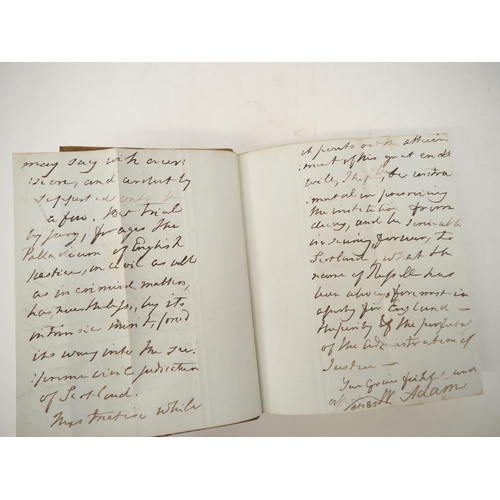 may say with aver
sion, and ardent by
supported only by
a few. But trial
by jury, for ages the
Palladium of English
Justice, in civil as well
as in criminal matters,
has, nevertheless, by its
intrinsic merit, forced
its way into the su
:preme civil judicature
of Scotland.
This treatise while
it points out the attain
:ment of this great and
will, I hope, be instru
:mental in preserving
the institution from
decay, and be serviceable
in securing, forever, to
Scotland, what the
name of Russell has
been always foremost in
for England —
the purity of the
of the administration of
Justice —
Your Grace's faithful and
W Adam